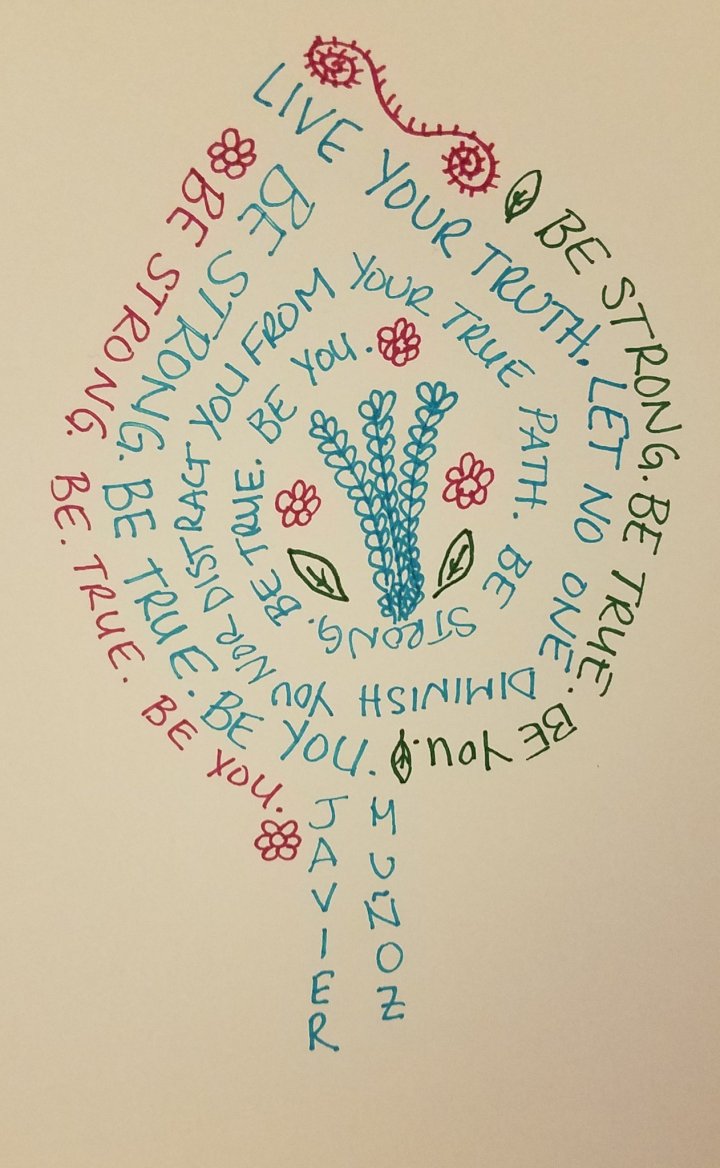 LIVE YOUR TRUTH. LET NO ONE DIMINISH YOU NOR DISTRACT YOU FROM YOUR TRUE PATH. BE STRONG. BE TRUE. BE YOU.
BE STRONG. BE TRUE. BE YOU.
BE STRONG. BE. TRUE. BE YOU.
BE STRONG. BE TRUE. BE YOU.
JAVIER
MUÑOZ